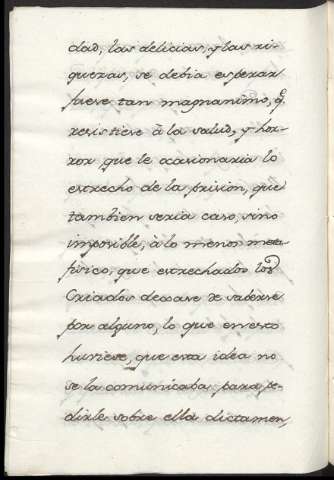 dad, las delicias, y las ri-
quezas, se debia esperar
fuese tan magnanimo, q̃
resistiese à la salud, y hor-
ror, que le acasionaria lo
estrecho de la prision, que
tambien seria caso, sino
imposible, à lo menos meta
fisico, que estrechados los
Criados dexase de saberse
por alguno, lo que en esto
huviese, que esta idea no
se la comunicaba para pe-
dirle sobre ella dictamen,